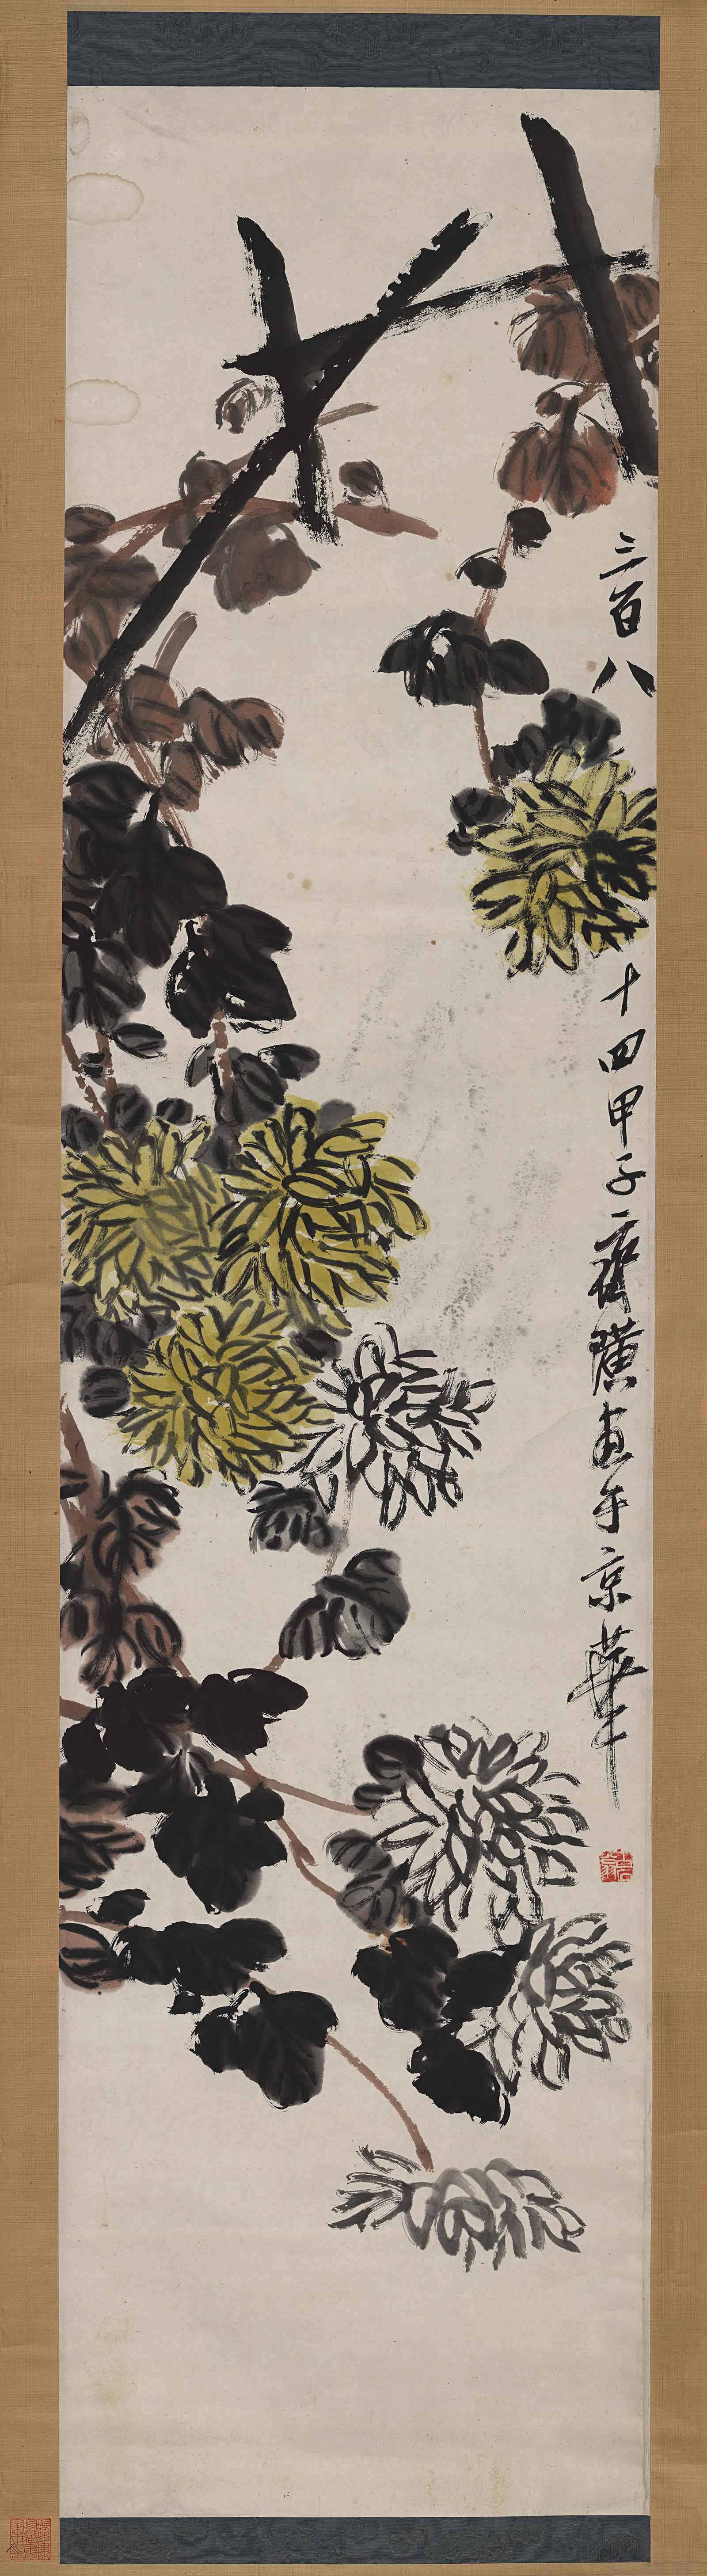 三百八十四甲子齊璜畫于京華